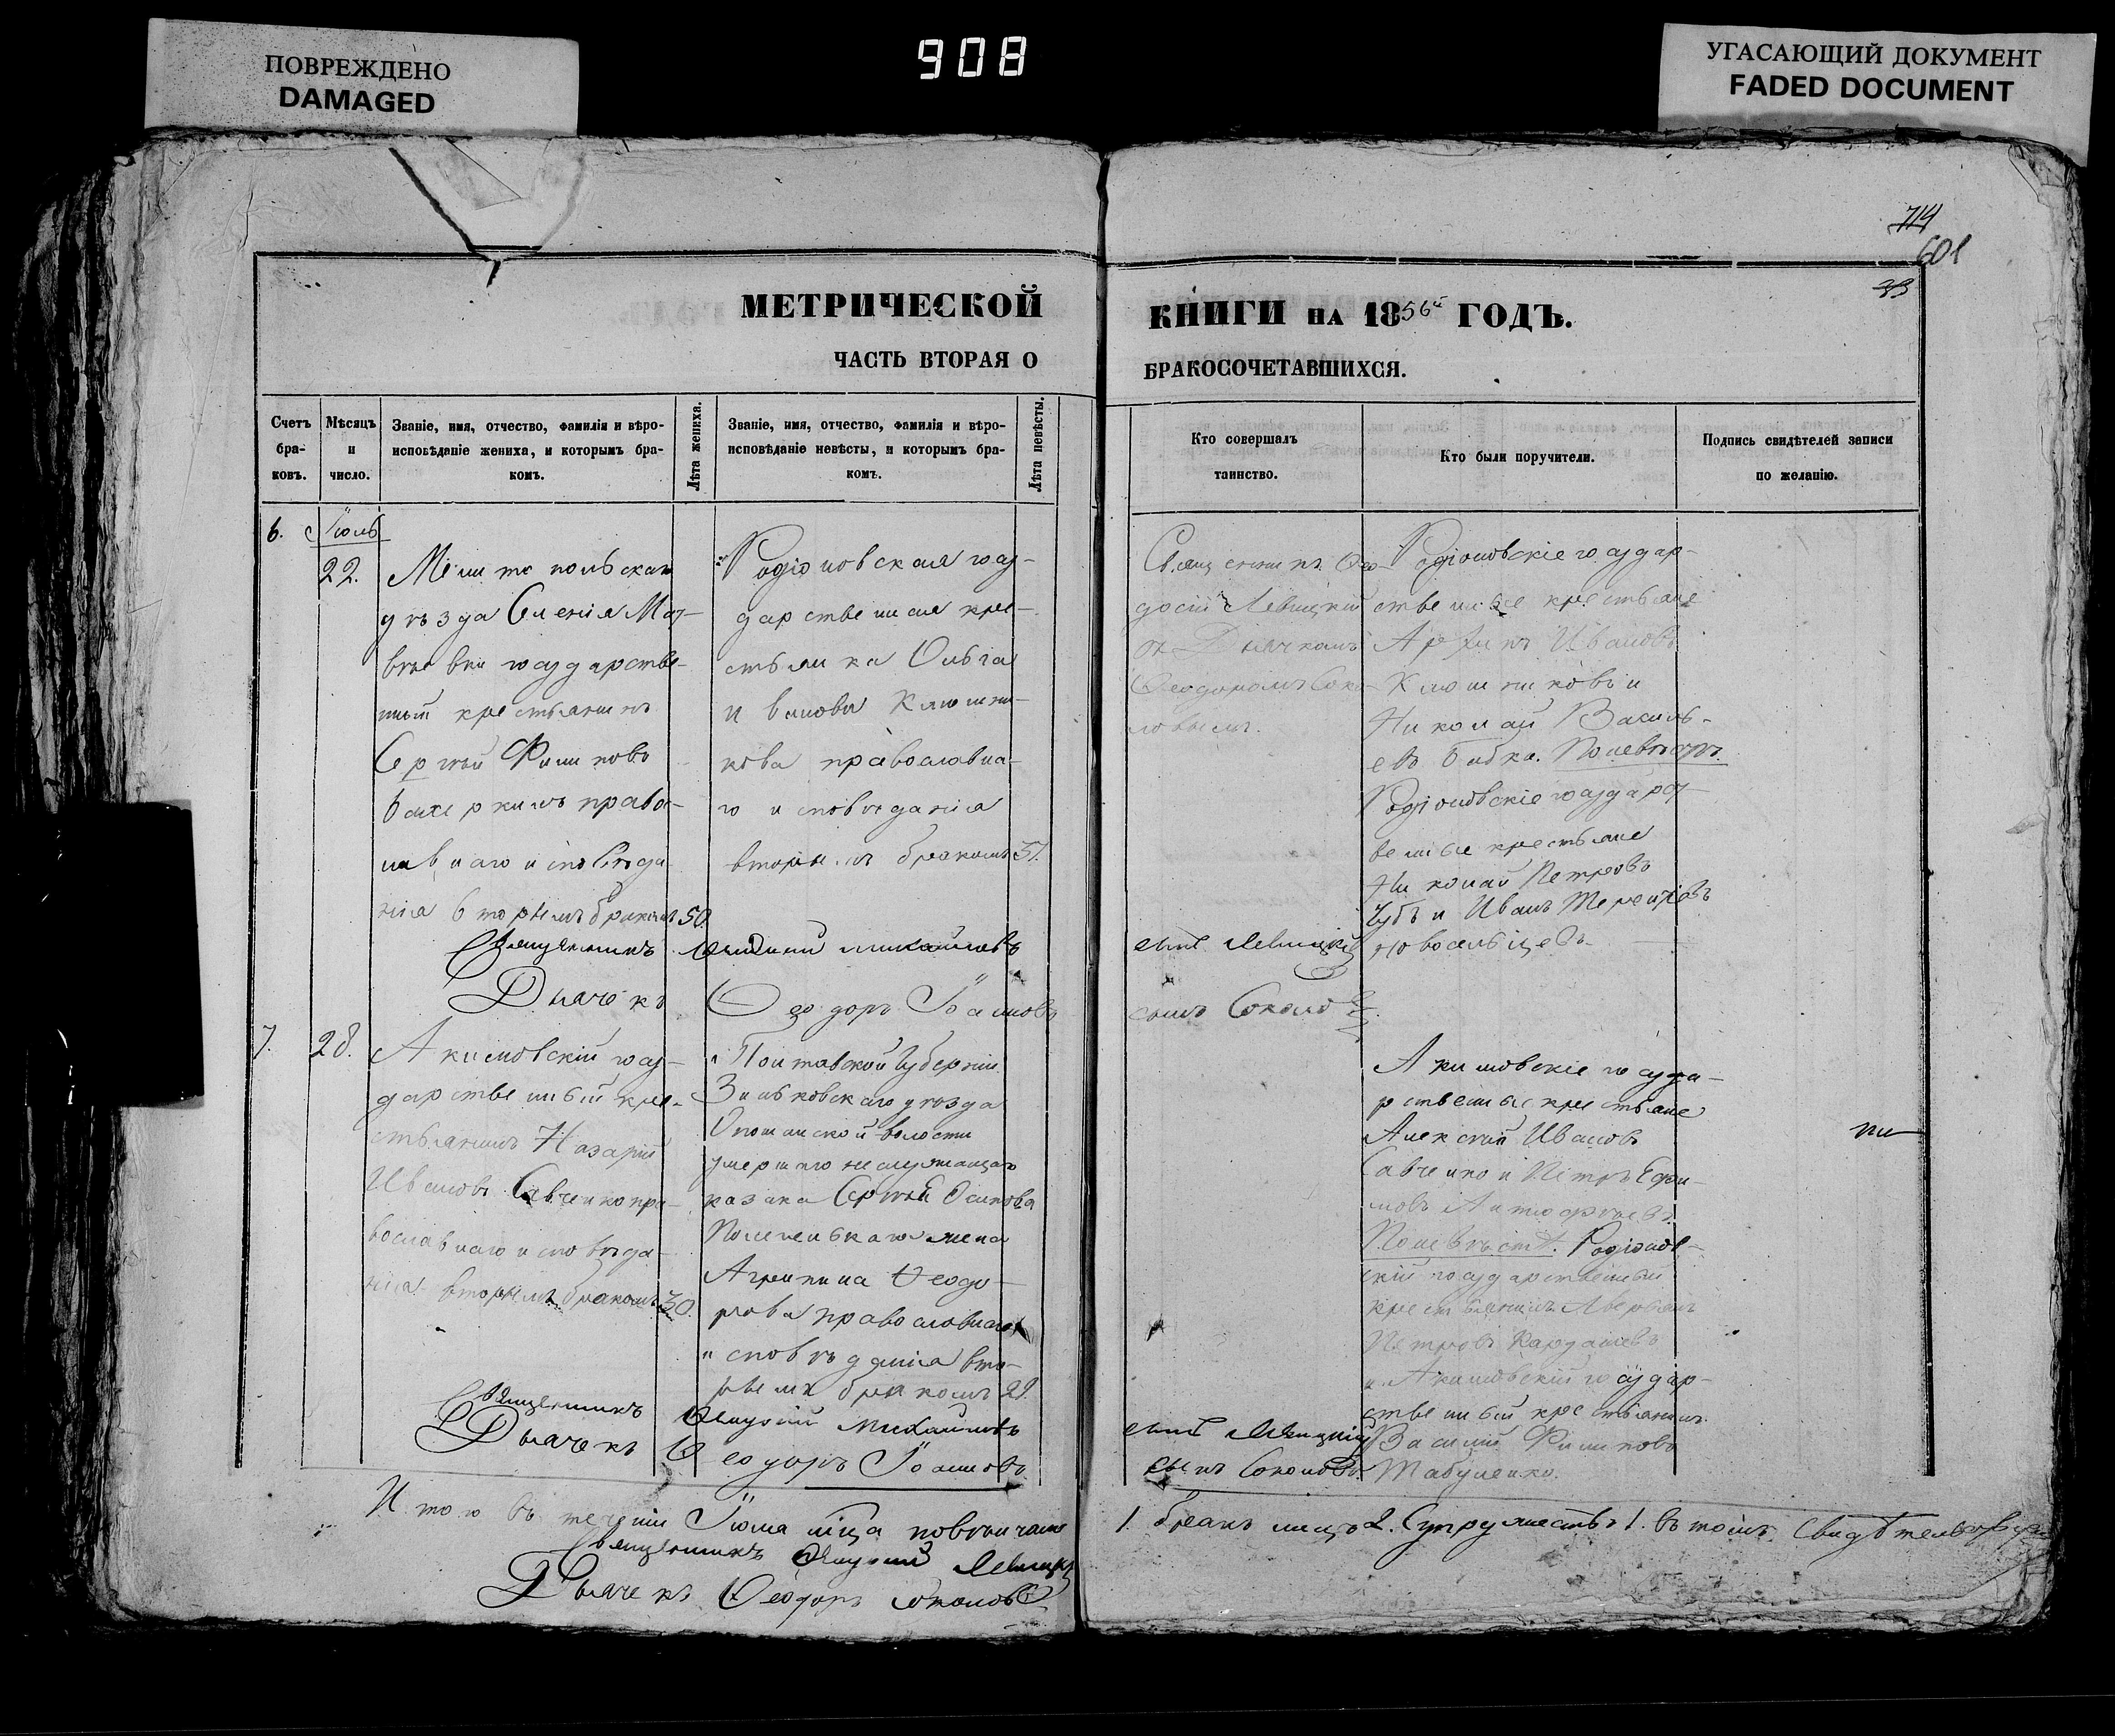 ПОВРЕЖДЕНО
DAMAGED
908
УГАСАЮЩИЙ ДОКУМЕНТ
FADED DOCUMENT
714
601
33
МЕТРИЧЕСКОЙ
КНИГИ НА 1856й ГОДЪ.
ЧАСТЬ ВТОРАЯ О
БРАКОСОЧЕТАВШИХСЯ.
Счетъ бра-
ковъ.
Мѣсяцъ
и
число.
Званіе, имя, отчество, фамилія и вѣро-
исповѣданіе жениха, и которымъ бра-
комъ.
Лѣта жениха.
Званіе, имя, отчество, фамилія и вѣро-
исповѣданіе невѣсты, и которымъ бра-
комъ.
Лѣта невѣсты.
Кто совершалъ
таинство.
Кто были поручители.
Подпись свидѣтелей записи
по желанію.
6.
Іюль
22.
уѣзда Селенія Мат-
вѣевки государстве-
нный крестьянинъ
Сергѣй Филиповъ
правос-
лавнаго исповѣда
нія вторымъ бракомъ 50.
Родіоновская госу-
дарственная кре-
стьянка Ольга
Иванова Клюшни-
кова православна-
го исповѣданія
вторымъ бракомъ 51.
Священникъ Ѳео-
досій Левицкій
съ Дьячкомъ
Ѳеодоромъ Соко-
ловымъ.
Родіоновскіе государ-
ственные крестьяне
Ивановъ
Клюшниковъ и
Николай Василь-
евъ Бабка. По невѣстѣ.
Родіоновскіе государст-
венные крестьяне
Николай Петровъ
Чубъ и Иванъ
Новосельцевъ.
Священникъ Михайловъ
сынъ Левицкій
Дьячекъ Ѳеодоръ Іоанновъ
сынъ Соколовъ
7.
28.
Акимовскій госу-
дарственный кре-
стьянинъ Назарій
Ивановъ Савченко пра-
вославнаго исповѣда-
нія вторымъ бракомъ 30.
Полтавской Губерніи
Зиньковскаго уѣзда
Опошнской волости
умершаго неслужащаго
казака Сергѣя Осипова
жена
Агрипина Ѳеодо-
рова православнаго
исповѣданія вто-
рымъ бракомъ 29.
Акимовскіе госуда-
рственные крестьяне
Алексѣй Ивановъ
Савченко и Петръ Ефи-
мовъ
По невѣстѣ. Родіонов-
скій государственный
крестьянинъ Аверьянъ
Петровъ Кардашевъ
и Акимовскій государ-
ственный крестьянинъ
Василій Филиповъ
Табуленко.
Священникъ Михайловъ
сынъ Левицкій
Дьячекъ Ѳеодоръ Іоанновъ
сынъ Соколовъ.
Итого въ теченіи Іюля м-ца повѣнчано
1. бракъ лицъ 2. Супружествъ 1. въ томъ
Священникъ Левицкій
Дьячекъ Ѳеодоръ Соколовъ